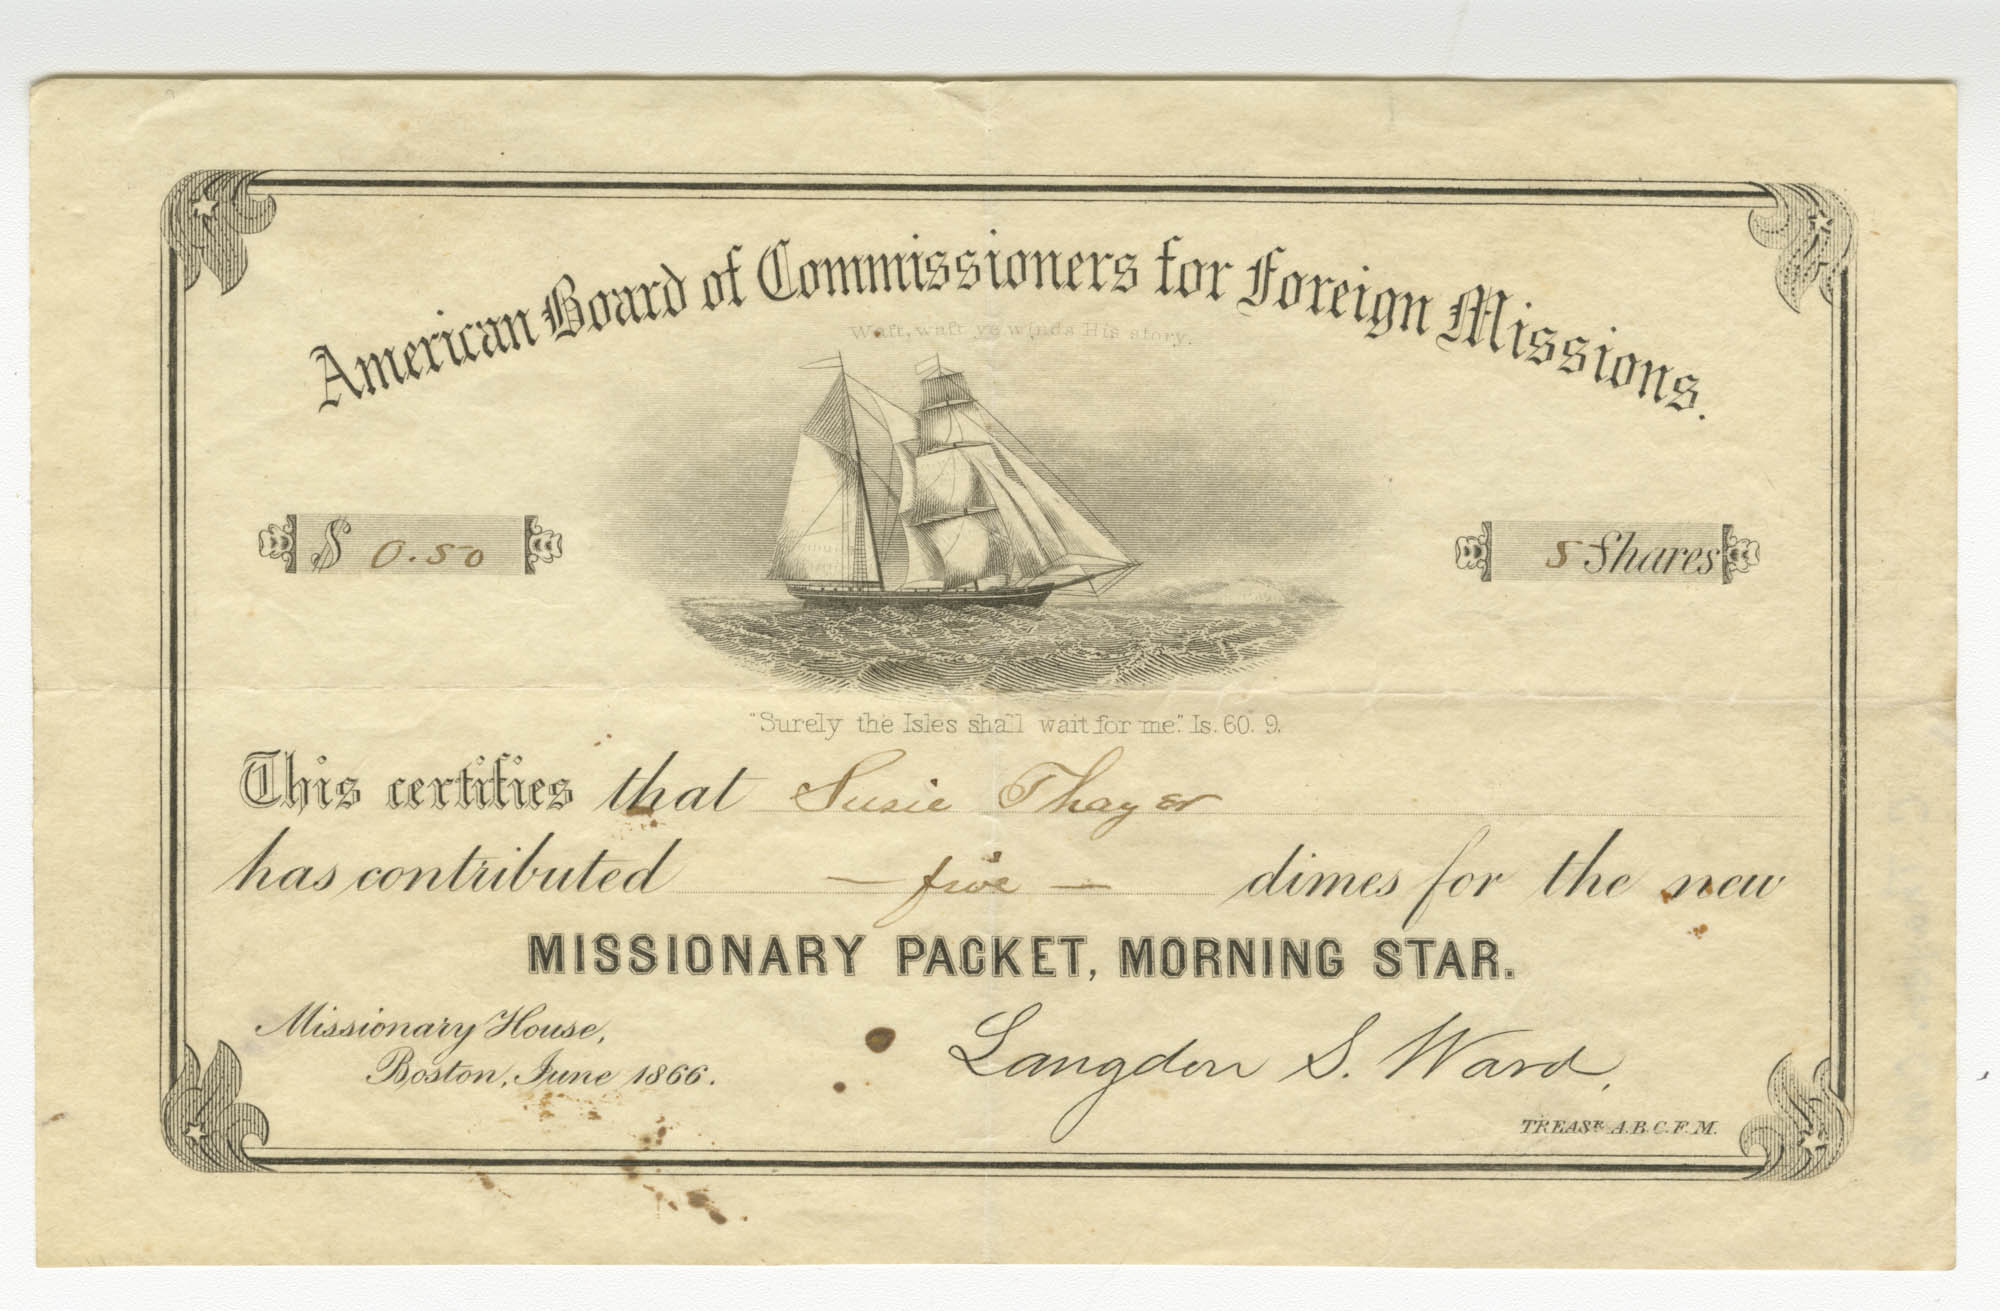 American Board of Commissioners for Foreign Missions.
Waft, waft ye winds His story.
$ 0.50
5 Shares
"Surely the Isles shall wait for me." Is. 60. 9.
This certifies that Susie Thayer
has contributed — five — dimes for the new
MISSIONARY PACKET, MORNING STAR.
Missionary House,
Boston, June 1866.
Langdon S. Ward.
TREASR A.B.C.F.M.